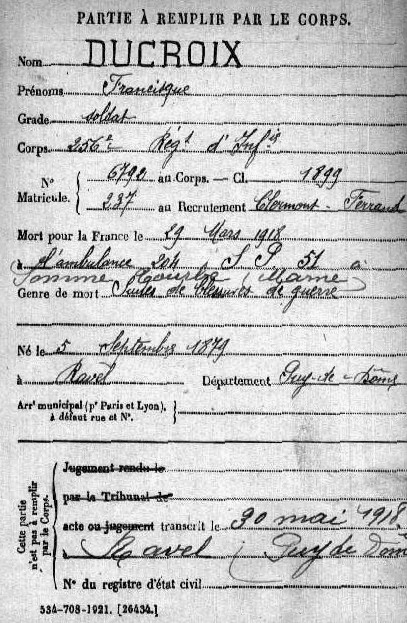 PARTIE À REMPLIR PAR LE CORPS.
Nom DUCROIX
Prénoms Francisque
Grade soldat
Corps 256e Régt d'Infie
N° Matricule. 6792 au Corps. — Cl. 1899
237 au Recrutement Clermont-Ferrand
Mort pour la France le 29 Mars 1918
à l'ambulance 204 S P 51 à
Somme Tourbe (Marne)
Genre de mort Suites de blessures de guerre
Né le 5 Septembre 1879
à Ravel Département Puy-de-Dôme
Arrt municipal (pr Paris et Lyon), à défaut rue et N°.
Cette partie n'est pas à remplir par le Corps.
Jugement rendu le
par le Tribunal de
acte ou jugement transcrit le 30 mai 1918
à Ravel (Puy de Dôme
N° du registre d'état civil
534-708-1921. [26434.]